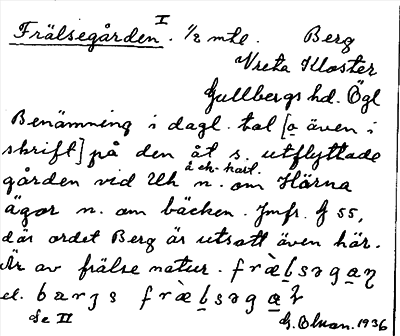 Frälsegården I. 1/2 mtl. Berg
Vreta Kloster
Gullbergs hd. Ögl
Benämning i dagl. tal [o även i
skrift] på den åt s. utflyttade
å ek. kart.
gården vid Uh n. om Härna
ägor n. om bäcken. Jmfr. f 55,
där ordet Berg är utsatt även här.
Är av frälse natur.
el.
Se II
G. Olson. 1936